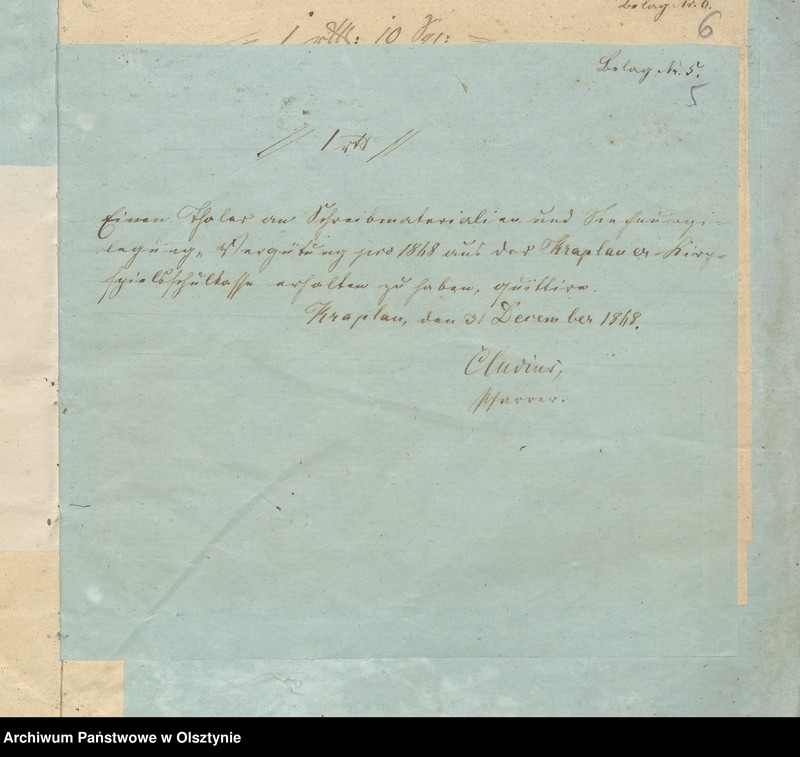 Belag Nr. 6.
6
1 rtl: 10 Sgr:
Belag Nr. 5.
5
// 1 rtl //
Einen Thaler an Schreibmaterialien und Rechnungs-
legungs-Vergütung pro 1848 aus der Kraplauer Kirch-
spielsschulkasse erhalten zu haben, quittire.
Kraplau, den 31 December 1848.
Cludius,
Pfarrer.
Archiwum Państwowe w Olsztynie